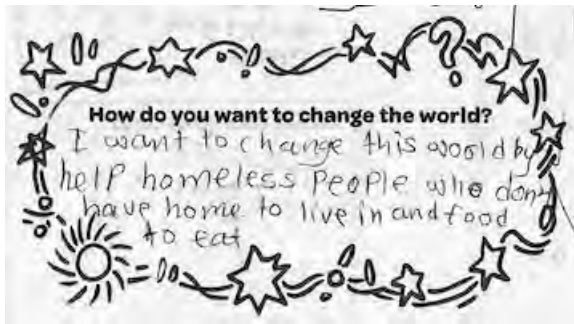 How do you want to change the world?
I want to change this woorld by
help homeless people who dont
have home to live in and food
to eat